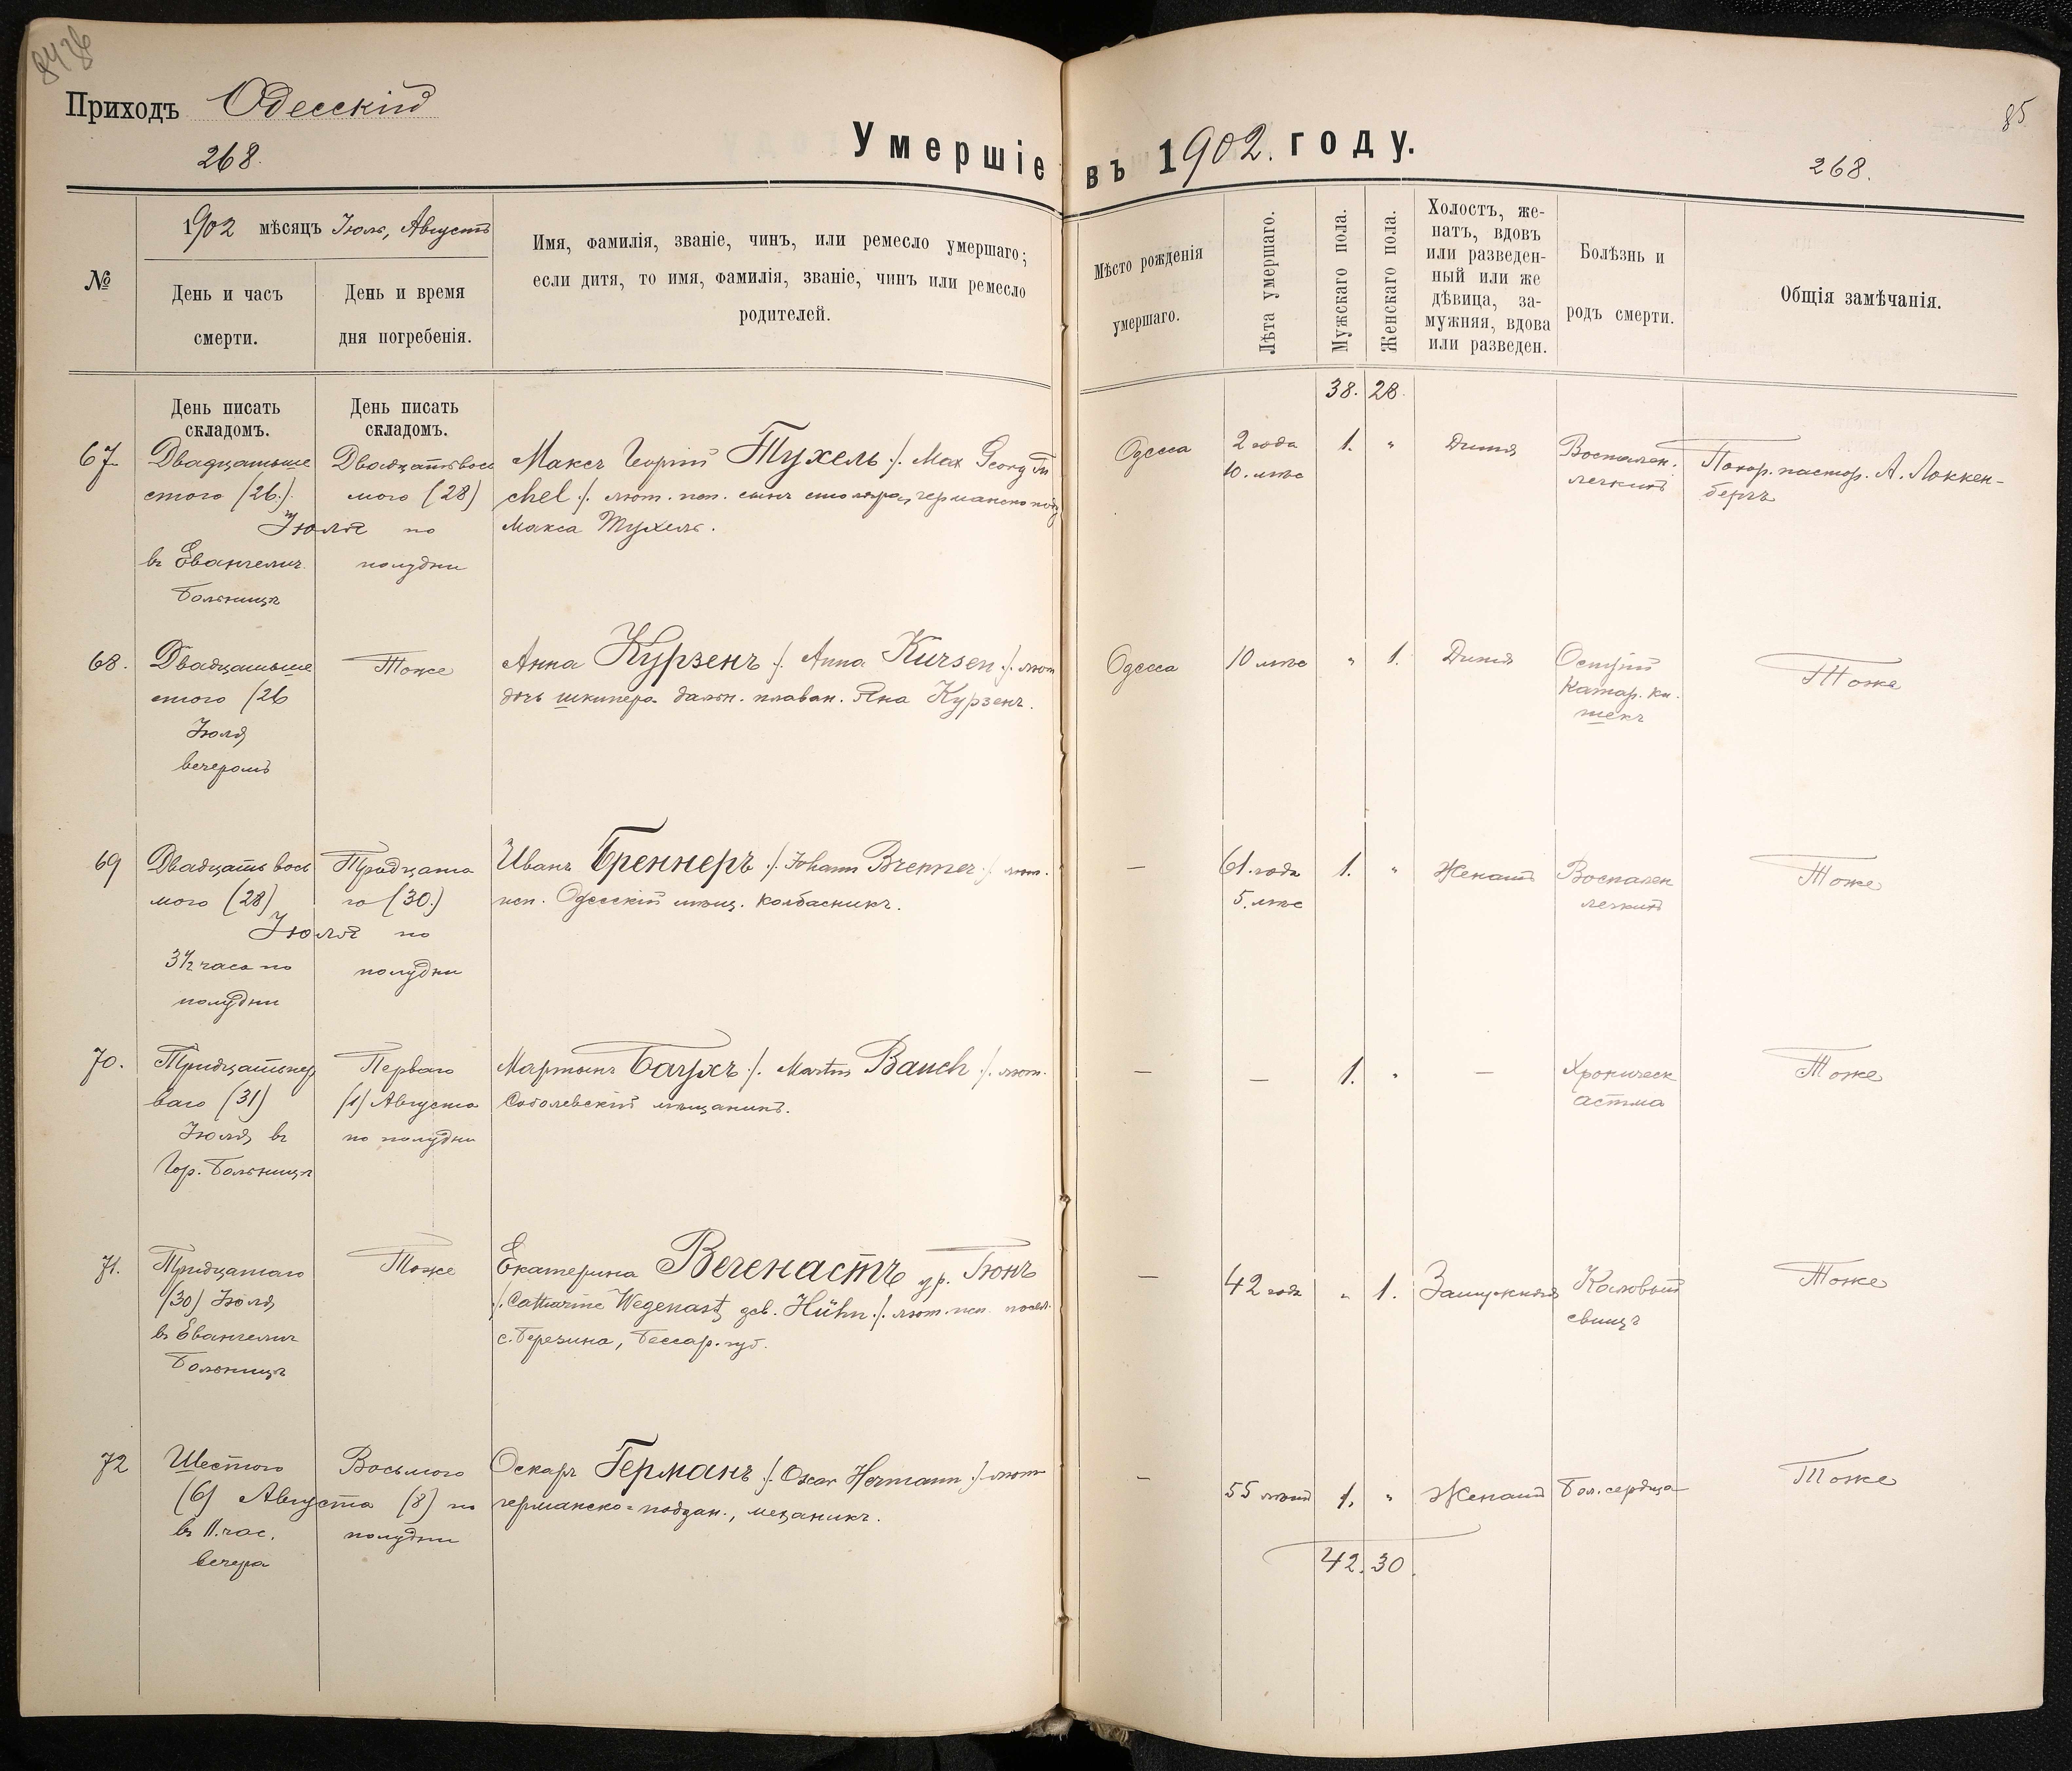 8426
Приходъ Одесскій
268.
Умершіе въ 1902. году.
85
268.
№
1902 мѣсяцъ Іюль, Августъ
День и часъ
смерти.
День и время
дня погребенія.
Имя, фамилія, званіе, чинъ, или ремесло умершаго;
если дитя, то имя, фамилія, званіе, чинъ или ремесло
родителей.
Мѣсто рожденія
умершаго.
Лѣта умершаго.
Мужскаго пола.
Женскаго пола.
Холостъ, же-
натъ, вдовъ
или разведен-
ный или же
дѣвица, за-
мужняя, вдова
или разведен.
Болѣзнь и
родъ смерти.
Общія замѣчанія.
День писать
складомъ.
День писать
складомъ.
38. 28.
67
Двадцатьше
стого (26.)
Іюля
въ Евангелич.
Больницѣ
Двадцатьвось
мого (28)
по
полудни
Максъ Георгій Тухель /. Max Georg Tu
chel /. лют. исп. сынъ столяра, германско под.
Макса Тухель.
Одесса
2 года
10. мѣс
1. "
Дитя
Воспален.
легкихъ
Похор. пастор. А. Локкен-
бергъ
68.
Двадцатьше
стого (26
Іюля
вечеромъ
Тоже
Анна Курзенъ /. Anna Kursen /. лют
дочь шкипера дальн. плаван. Яна Курзенъ.
Одесса
10 мѣс
" 1.
Дитя
Острый
Катар. ки-
шекъ
Тоже
69
Двадцать вось
мого (28)
Іюля
3 1/2 часа по
полудни
Тридцата
го (30.)
по
полудни
Иванъ Бреннеръ /. Johann Brenner /. лют.
исп. Одесскій мѣщ. колбасникъ.
—
61. года
5. мѣс
1. "
Женатъ
Воспален
легкихъ
Тоже
70.
Тридцатьпер
ваго (31)
Іюля въ
Гор. Больницѣ
Перваго
(1) Августа
по полудни
Мартынъ Баухъ /. Martin Bauch /. лют.
Соболевскій мѣщанинъ.
—
—
1. "
—
Хроническ
астма
Тоже
71.
Тридцатаго
(30) Іюля
въ Евангелич
Больницѣ
Тоже
Екатерина Вегенастъ ур. Гюнъ
/. Catharine Wegenast, geb. Hühn /. лют. исп. посел.
с. Березина, Бессар. губ.
—
42 года
" 1.
Замужняя
Каловый
свищъ
Тоже
72
Шестого
(6) Августа
въ 11. час.
вечера
Восьмого
(8) по
полудни
Оскаръ Германъ /. Oscar Hermann /. лют
германско-поддан., механикъ.
—
55 лѣтъ
1. "
Женатъ
Бол. сердца
Тоже
42. 30.